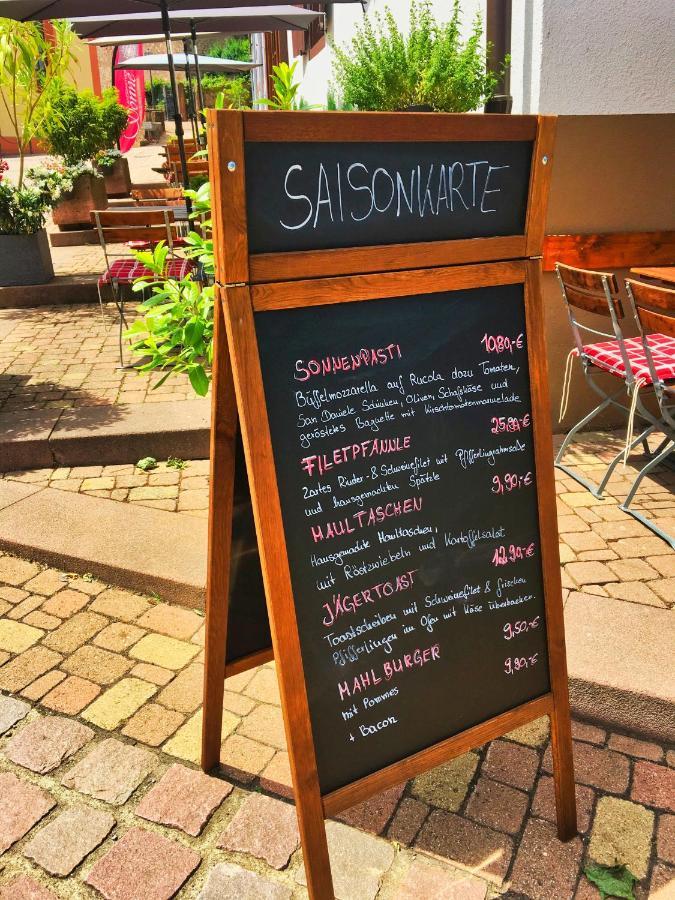 SAISONKARTE
SONNENPASTI 10,80,-€
Büffelmozzarella auf Rucola dazu Tomaten,
San Daniele Schinken, Oliven, Schafskäse und
geröstetes Baguette mit Kirschtomatenmarmelade
FILETPFANNLE 25,80,-€
Zartes Rinder-& Schweinefilet mit Pfifferlingrahmsoße
und hausgemachten Spätzle
MAULTASCHEN 9,90,-€
Hausgemachte Maultaschen,
mit Röstzwiebeln und Kartoffelsalat
JÄGERTOAST 12,90,-€
Toastscheiben mit Schweinefilet & frischen
Pfifferlingen im Ofen mit Käse überbacken.
MAHLBURGER 9,50,-€
mit Pommes
+ Bacon 9,90,-€